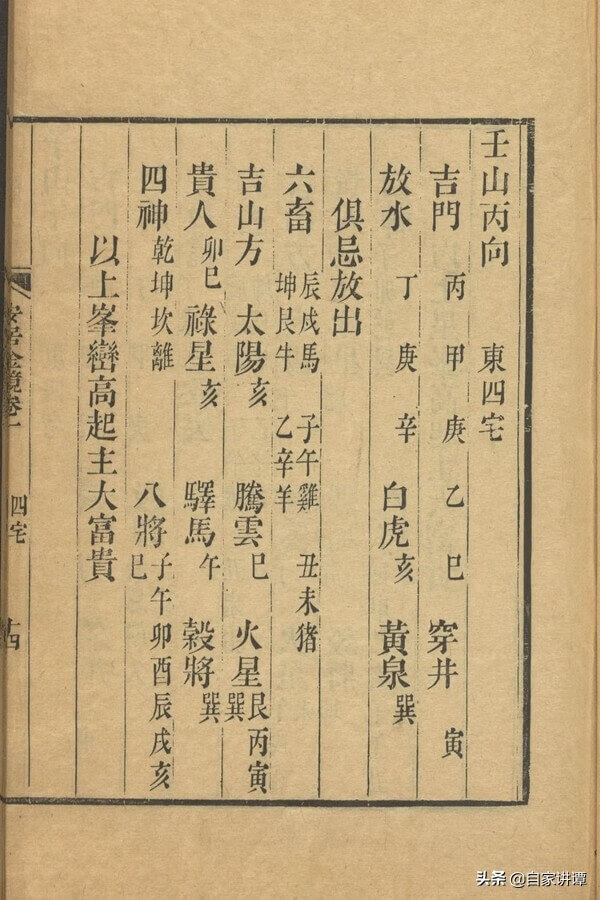 壬山丙向　東四宅
吉門　丙　甲　庚　乙　巳　穿井　寅
放水　丁　庚　辛　白虎亥　黃泉巽
俱忌放出
六畜　辰戌馬　子午雞　丑未猪
坤艮牛　乙辛羊
吉山方　太陽亥　騰雲巳　火星艮丙寅巽
貴人卯巳　祿星亥　驛馬午　穀將巽
四神乾坤坎離　八將子午卯酉辰戌亥巳
以上峯巒高起主大富貴
安居金鏡卷一　四宅　十四
头条 @自家讲谭